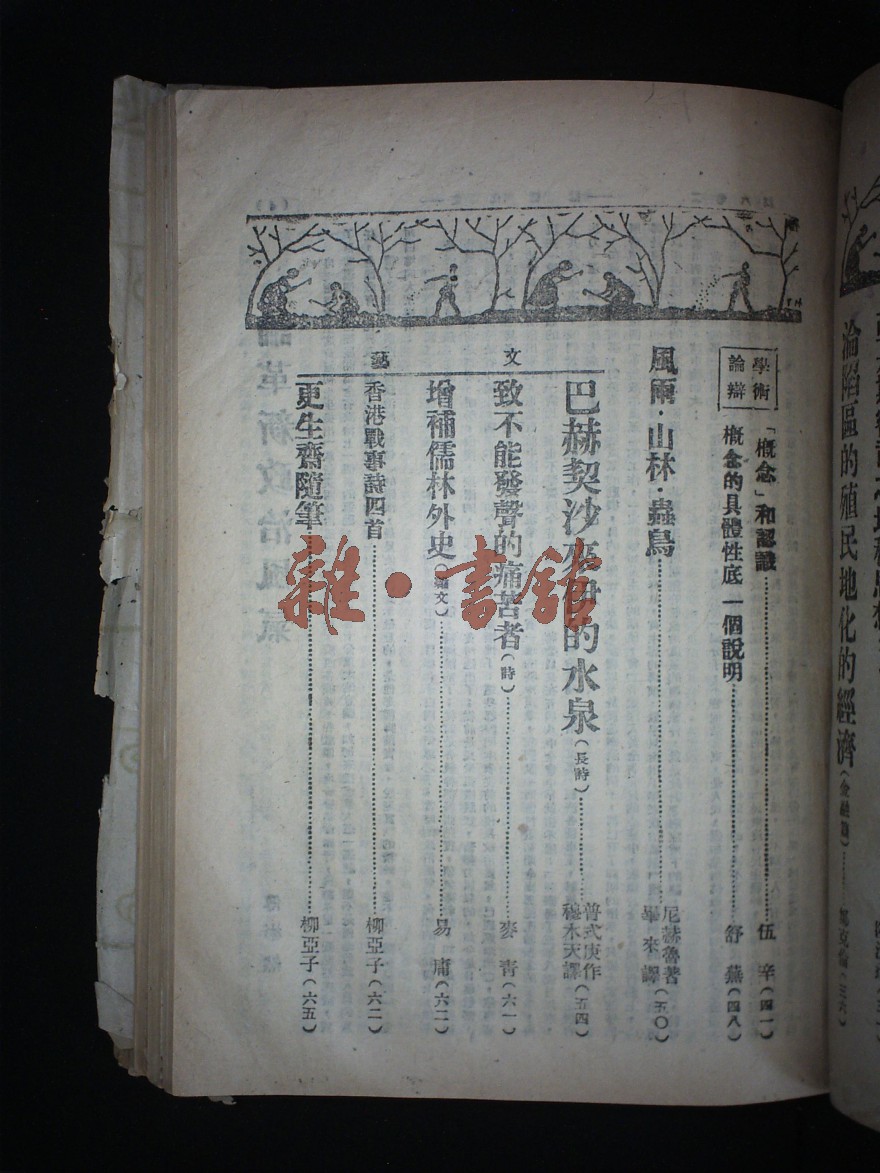 淪陷區的殖民地化的經濟
學術
論辯
「概念」和認識 伍辛(四一)
概念的具體性底一個說明 舒蕪(四八)
風雨·山林·蟲鳥 尼赫魯著 畢來譯(五〇)
文
巴赫契沙來伊的水泉(長詩) 普式庚作 穆木天譯(五四)
致不能發聲的痛苦者(詩) 麥青(六一)
增補儒林外史(論文) 易庸(六二)
藝
香港戰事詩四首 柳亞子(六二)
更生齋隨筆 柳亞子(六五)
雜·書館